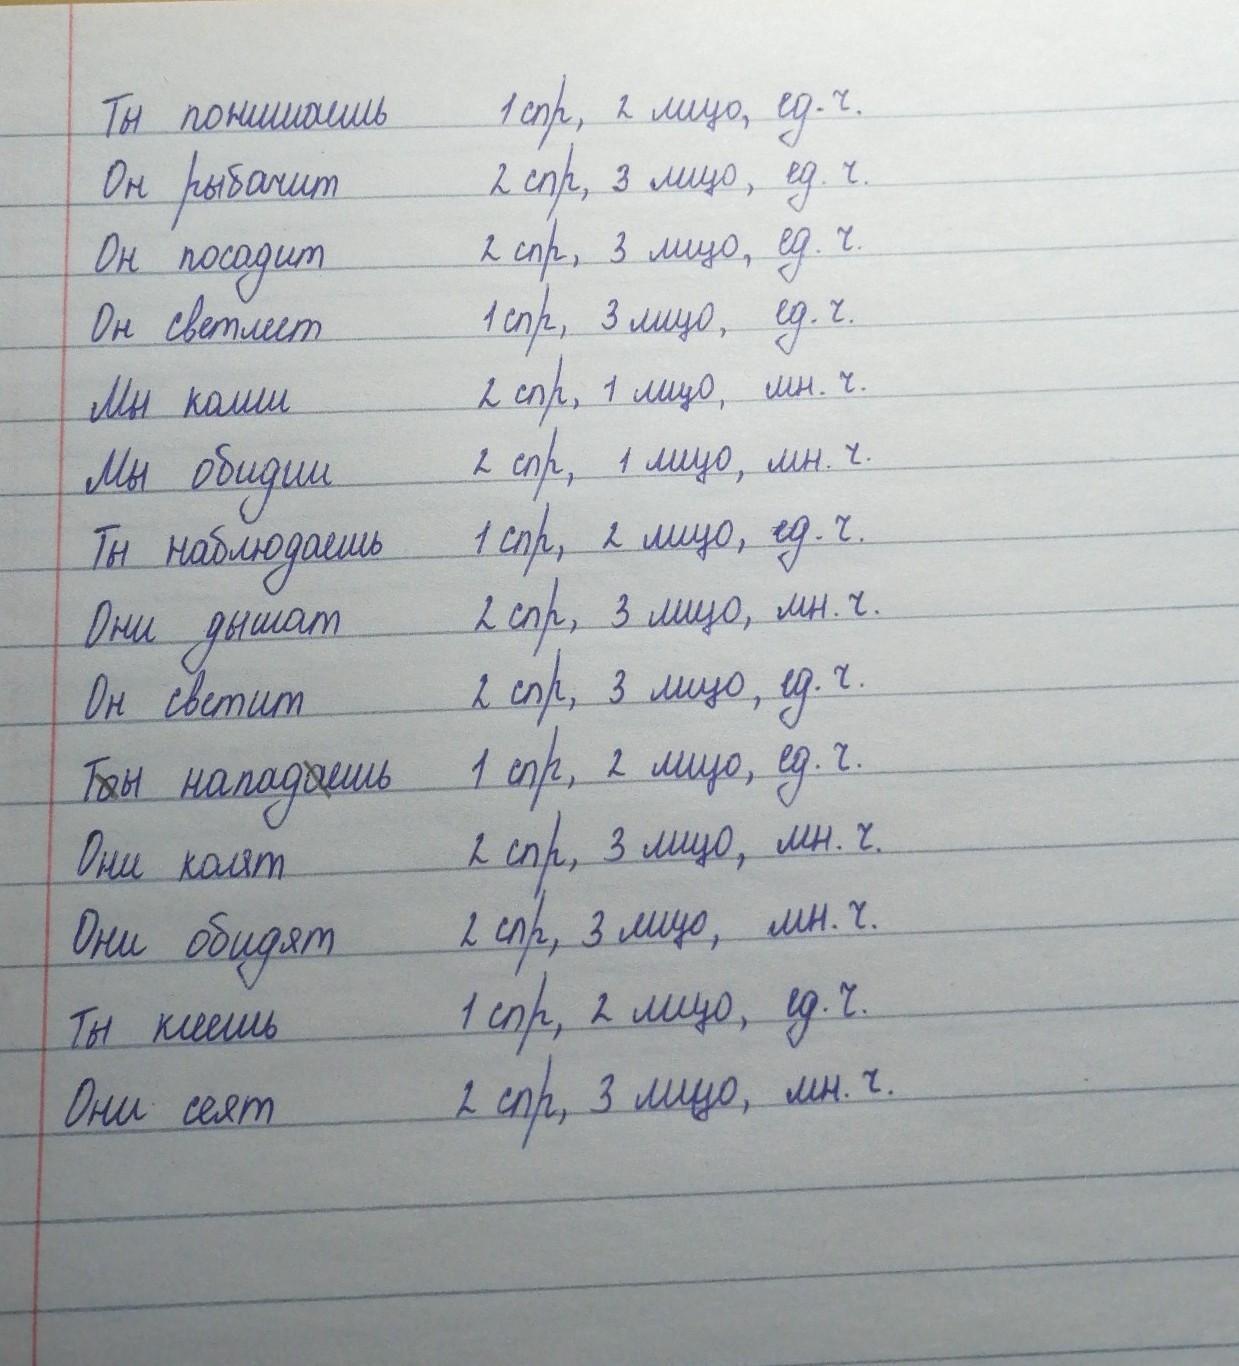 Ты понимаешь 1 спр, 2 лицо, ед. ч.
Он рыбачит 2 спр, 3 лицо, ед. ч.
Он посадит 2 спр, 3 лицо, ед. ч.
Он светлеет 1 спр, 3 лицо, ед. ч.
Мы 2 спр, 1 лицо, мн. ч.
Мы обидим 2 спр, 1 лицо, мн. ч.
Ты наблюдаешь 1 спр, 2 лицо, ед. ч.
Они дышат 2 спр, 3 лицо, мн. ч.
Он светит 2 спр, 3 лицо, ед. ч.
Ты нападаешь 1 спр, 2 лицо, ед. ч.
Они колят 2 спр, 3 лицо, мн. ч.
Они обидят 2 спр, 3 лицо, мн. ч.
Ты клеешь 1 спр, 2 лицо, ед. ч.
Они сеят 2 спр, 3 лицо, мн. ч.